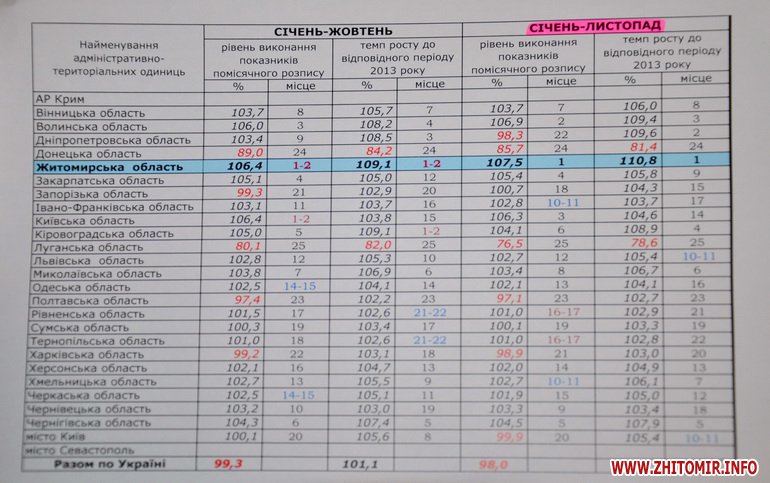 СІЧЕНЬ-ЖОВТЕНЬ СІЧЕНЬ-ЛИСТОПАД
Найменування адміністративно-територіальних одиниць
рівень виконання показників помісячного розпису
темп росту до відповідного періоду 2013 року
рівень виконання показників помісячного розпису
темп росту до відповідного періоду 2013 року
% місце % місце % місце % місце
АР Крим
Вінницька область 103,7 8 105,7 7 103,7 7 106,0 8
Волинська область 106,0 3 108,2 4 106,9 2 109,4 3
Дніпропетровська область 103,4 9 108,5 3 98,3 22 109,6 2
Донецька область 89,0 24 84,2 24 85,7 24 81,4 24
Житомирська область 106,4 1-2 109,1 1-2 107,5 1 110,8 1
Закарпатська область 105,1 4 105,0 12 105,4 4 105,8 9
Запорізька область 99,3 21 102,9 20 100,7 18 104,3 15
Івано-Франківська область 103,1 11 103,7 16 102,8 10-11 103,7 17
Київська область 106,4 1-2 103,8 15 106,3 3 104,6 14
Кіровоградська область 105,0 5 109,1 1-2 104,1 6 108,9 4
Луганська область 80,1 25 82,0 25 76,5 25 78,6 25
Львівська область 102,8 12 105,3 10 102,7 12 105,4 10-11
Миколаївська область 103,8 7 106,9 6 103,4 8 106,7 6
Одеська область 102,5 14-15 104,1 14 102,1 13 104,1 16
Полтавська область 97,4 23 102,2 23 97,1 23 102,7 23
Рівненська область 101,5 17 102,6 21-22 101,0 16-17 102,9 21
Сумська область 100,3 19 103,4 17 100,1 19 103,3 19
Тернопільська область 101,0 18 102,6 21-22 101,0 16-17 102,8 22
Харківська область 99,2 22 103,1 18 98,9 21 103,0 20
Херсонська область 102,1 16 104,7 13 102,0 14 104,9 13
Хмельницька область 102,7 13 105,5 9 102,7 10-11 106,1 7
Черкаська область 102,5 14-15 105,1 11 101,9 15 105,0 12
Чернівецька область 103,2 10 103,0 19 103,3 9 103,4 18
Чернігівська область 104,3 6 107,4 5 104,5 5 107,9 5
місто Київ 100,1 20 105,6 8 99,9 20 105,4 10-11
місто Севастополь
Разом по Україні 99,3 101,1 98,0
WWW.ZHITOMIR.INFO